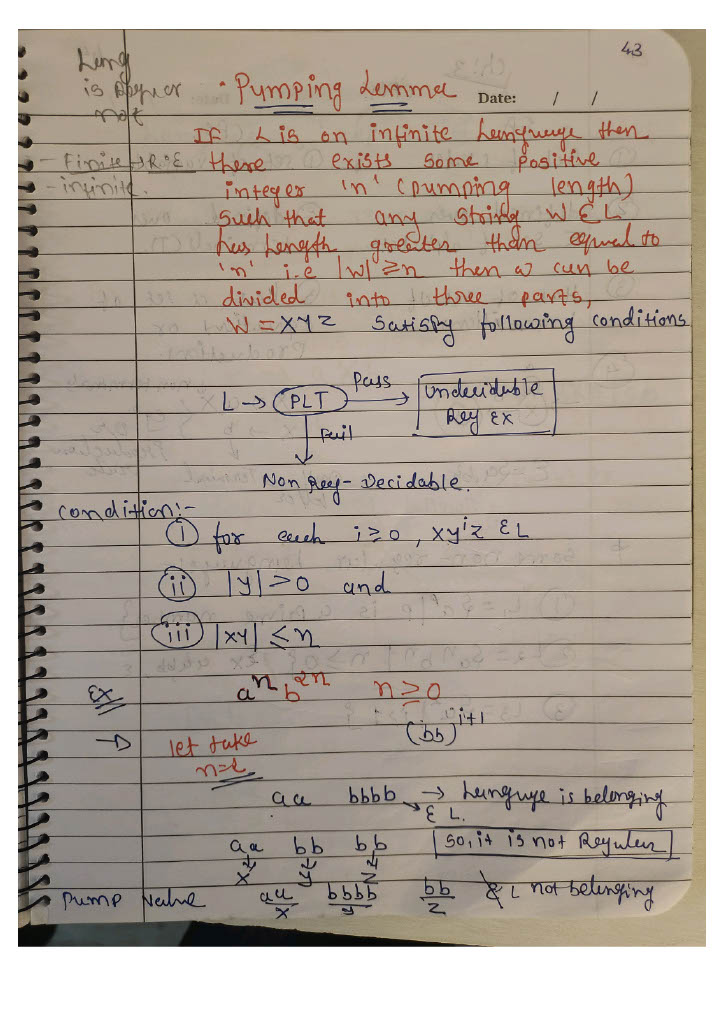 43
Lang
is Regular or
not
• Pumping Lemma
Date: / /
If L is an infinite Language then
- Finite → R.E
there exists some positive
- infinite.
integer 'n' (pumping length)
Such that any string W ∈ L
has Length greater than equal to
'n' i.e |w| ≥ n then w can be
divided into three parts,
W = XYZ Satisfy following conditions
L → (PLT) Pass → Undecidable
Reg Ex
↓ Fail
Non Reg - Decidable.
Condition:-
(i) for each i ≥ 0, xyⁱz ∈ L
(ii) |y| > 0 and
(iii) |xy| ≤ n
Ex aⁿ b²ⁿ n ≥ 0
(bb)ⁱ⁺¹
→ let take
n=2
aa bbbb → Language is belonging
∈ L.
aa bb bb So, it is not Regular
X Y Z
Pump Value aa bbbb bb ∉ L not belonging
X Y Z